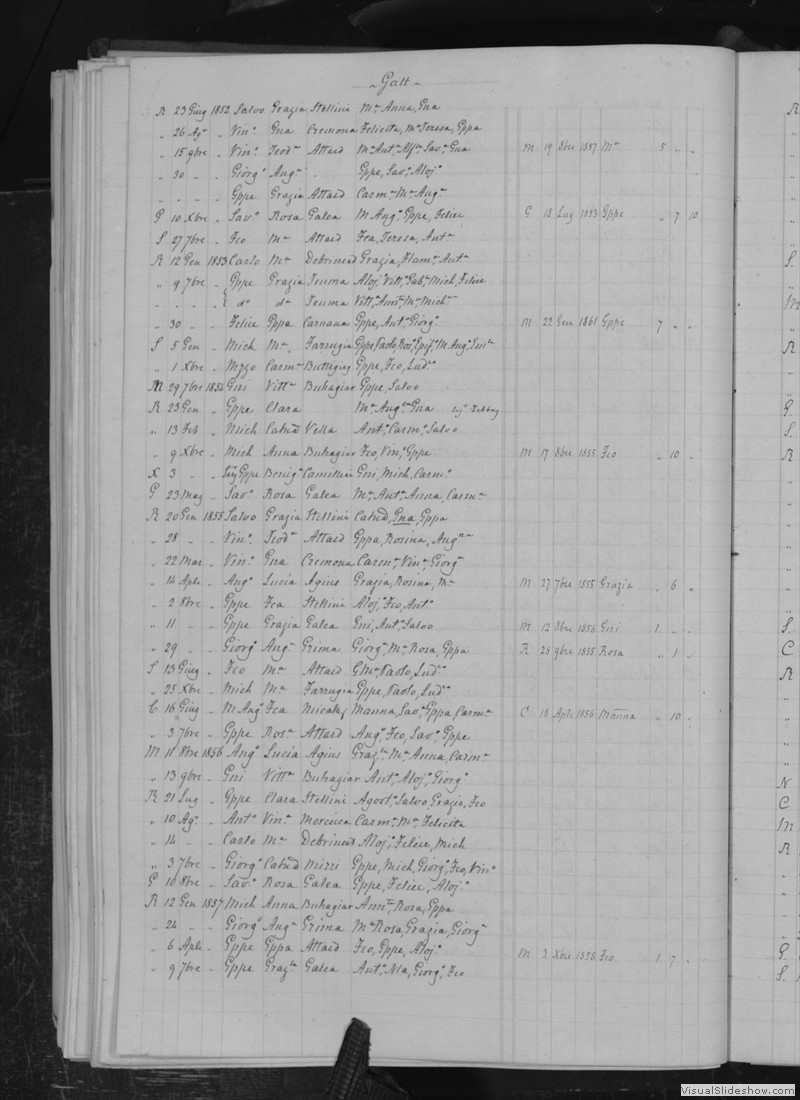 Gatt
R 23 Giug 1852 Salvo Grazia Stellini Mª Anna, Gna
„ 26 Agº „ Vinº Gna Cremona Felicita, Mª Teresa, Gppa
„ 15 9bre „ Vinº Teodª Attard Mª Antª Savª Gna M 19 8bre 1857 Mª 5 „ „
„ 30 „ „ Giorgº Augª Gppe, Savº Alojº
„ „ „ „ Gppe Grazia Attard Carmª Mª Augª
G 10 Xbre „ Savº Rosa Galea M Augº Gppe, Felice C 18 Lug 1853 Gppe „ 7 10
S 27 7bre „ Fco Mª Attard Fca, Teresa, Antª
R 12 Gen 1853 Carlo Mª Debrincat Grazia, Antª
„ 9 7bre „ Gppe Grazia Teuma Aloj, Vittª Gabª Mich, Felice
„ „ „ „ dº dª Teuma Vittª Mª Michª
„ 30 „ „ Felice Gppa Caruana Gppe, Antº Giorgº M 22 Gen 1861 Gppe 7 „ „
S 5 Gen „ Mich Mª Farrugia Gppe, Paolo, Rosº M Augº
„ 1 Xbre „ Mzzo Carmª Buttigieg Gppe, Fco, Ludº
M 29 7bre 1854 Gni Vittª Buhagiar Gppe, Salvo
R 23 Gen „ Gppe Clara Mª Augª Gna
„ 13 Feb „ Mich Catnd Vella Antº Carmº Salvo
„ 9 Xbre „ Mich Anna Buhagiar Fco, Vinº Gppe M 17 8bre 1855 Fco „ 10 „
X 3 „ „ Gppe Benigª Camilleri Gni, Mich, Carmº
G 23 Mag „ Savº Rosa Galea Mª Antª Anna, Carmª
R 20 Gen 1855 Salvo Grazia Stellini Catnd, Gna, Gppa
„ 28 „ „ Vinº Teodª Attard Gppa, Rosina, Augª
„ 22 Mar „ Vinº Gna Cremona Carmº Vinº Giorgº
„ 14 Aple „ Augº Lucia Agius Grazia, Rosina, Mª M 27 7bre 1855 Grazia „ 6 „
„ 2 8bre „ Gppe Fca Stellini Alojº Fco, Antº
„ 11 „ „ Gppe Grazia Galea Gni, Antº Salvo M 12 8bre 1856 Gni 1 „ „
„ 29 „ „ Giorgº Augª Grima Giorgª Mª Rosa, Gppa R 28 9bre 1855 Rosa „ 1 „
S 13 Giug „ Fco Mª Attard GMª Paolo, Ludº
„ 25 Xbre „ Mich Mª Farrugia Gppe, Paolo, Ludº
C 16 Giug „ M Augº Fca Micallef Manna, Savª Gppa, Carmª C 18 Aple 1856 Manna „ 10 „
„ 3 7bre „ Gppe Rosª Attard Augº Fco, Savº Gppe
M 11 8bre 1856 Augº Lucia Agius Grazª Mª Anna, Carmª
„ 13 9bre „ Gni Vittª Buhagiar Antº Alojº Giorgº
R 21 Lug „ Gppe Clara Stellini Agostº Salvo, Grazio, Fco
„ 10 Agº „ Antº Vinª Mercieca Carmª Mª Felicita
„ 14 „ „ Carlo Mª Debrincat Alojº Felice, Mich
„ 3 7bre „ Giorgº Catnd Mizzi Gppe, Mich, Giorgº Fco, Vinº
G 10 8bre „ Savº Rosa Galea Gppe, Felice, Alojº
R 12 Gen 1857 Mich Anna Buhagiar Annª Rosa, Gppa
„ 24 „ „ Giorgº Augª Grima Mª Rosa, Grazia, Giorgª
„ 6 Aple „ Gppe Gppa Attard Fco, Gppe, Alojº M 3 Xbre 1858 Fco 1 7 „
„ 9 7bre „ Gppe Grazª Galea Antº Nla, Giorgº Fco
VisualSlideshow.com